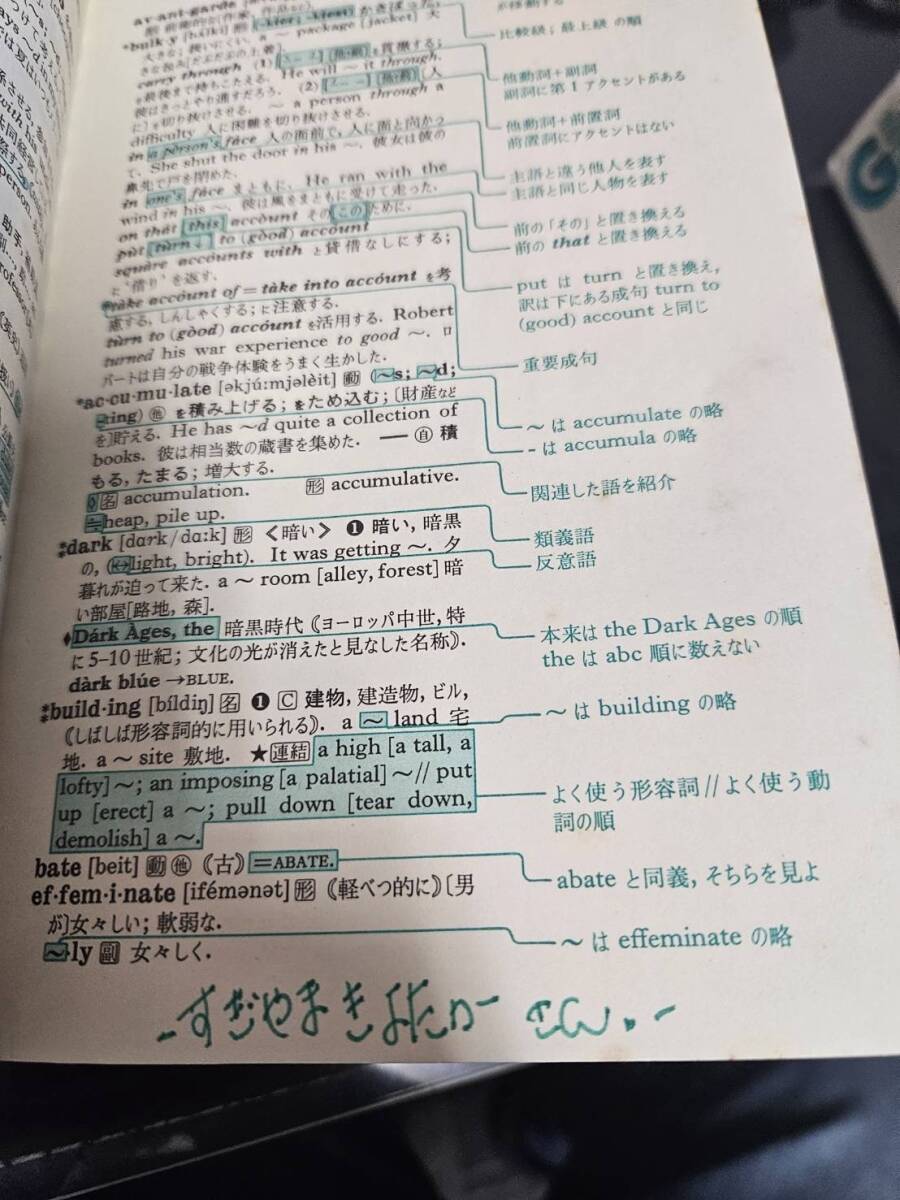 av·ant-garde
*bulk·y
大きな; 扱いにくい. a ~ package [jacket] 大
きな包み[だぶだぶの上着].
carry through (1) を貫徹する;
を最後まで持ちこたえる. He will ~ it through.
彼はきっとやり通すだろう. (2) 〔人
に〕を切り抜けさせる. ~ a person through a
difficulty 人に困難を切り抜けさせる.
in a person's face 人の面前で, 人に面と向かっ
て. She shut the door in his ~. 彼女は彼の
鼻先で戸を閉めた.
in one's face まともに. He ran with the
wind in his ~. 彼は風をまともに受けて走った.
on that [this] accòunt その[この]ために.
put [turn] to (gòod) account
square accounts with と貸借なしにする;
に‘借り’を返す.
*tàke accóunt of=tàke into accóunt を考
慮する, しんしゃくする; に注意する.
tùrn to (gòod) accóunt を活用する. Robert
turned his war experience to good ~. ロ
バートは自分の戦争体験をうまく生かした.
*ac·cu·mu·late [əkjú:mjəlèit] 動 (~s; ~d;
-ting) 他 を積み上げる; をため込む; 〔財産など
を〕貯える. He has ~d quite a collection of
books. 彼は相当数の蔵書を集めた. ── 自 積
もる, たまる; 増大する.
◊ 名 accumulation. 形 accumulative.
≒ heap, pile up.
⁑dark [dɑrk/dɑ:k] 形 〈暗い〉 ❶ 暗い, 暗黒
の, (↔light, bright). It was getting ~. 夕
暮れが迫って来た. a ~ room [alley, forest] 暗
い部屋[路地, 森].
♦Dárk Àges, the 暗黒時代《ヨーロッパ中世, 特
に5-10世紀; 文化の光が消えたと見なした名称》.
dàrk blúe →BLUE.
⁑build·ing [bíldiŋ] 名 ❶ C 建物, 建造物, ビル,
《しばしば形容詞的に用いられる》. a ~ land 宅
地. a ~ site 敷地. ★連結 a high [a tall, a
lofty] ~; an imposing [a palatial] ~// put
up [erect] a ~; pull down [tear down,
demolish] a ~.
bate [beit] 動 他 《古》 =ABATE.
ef·fem·i·nate [ifémənət] 形 《軽べつ的に》〔男
が〕女々しい; 軟弱な.
~·ly 副 女々しく.
が移動する
比較級; 最上級 の順
他動詞+副詞
副詞に第1アクセントがある
他動詞+前置詞
前置詞にアクセントはない
主語と違う他人を表す
主語と同じ人物を表す
前の「その」と置き換える
前の that と置き換える
put は turn と置き換え,
訳は下にある成句 turn to
(good) account と同じ
重要成句
~ は accumulate の略
- は accumula の略
関連した語を紹介
類義語
反意語
本来は the Dark Ages の順
the は abc 順に数えない
~ は building の略
よく使う形容詞//よく使う動
詞の順
abate と同義, そちらを見よ
~ は effeminate の略
-すぎやまきよたか さん.-